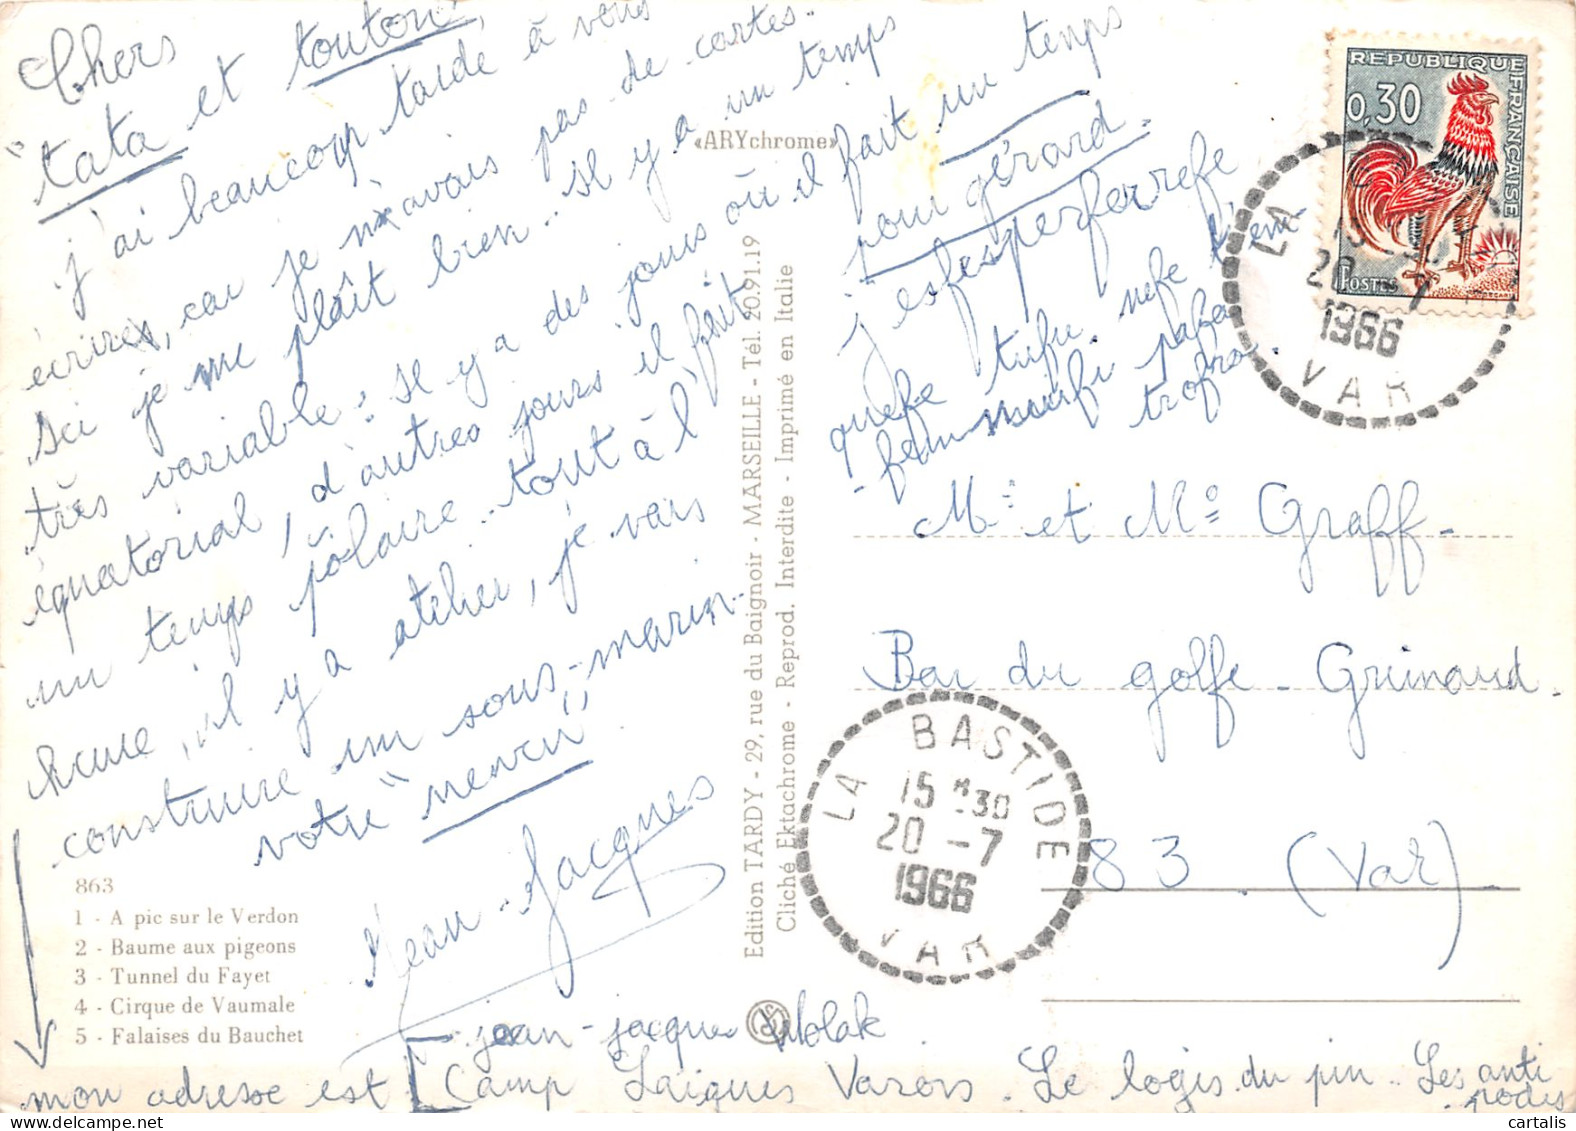 Chers
"tata et touton",
j'ai beaucoup tardé à vous
écrire, car je n'avais pas de cartes.
Ici je me plaît bien. Il y a un temps
très variable : Il y a des jours où il fait un temps
équatorial, d'autres jours il fait
un temps pôlaire. tout à l'
heure, il y a atelier, je vais
construire un sous-marin.
votre "nenou"
Jean-Jacques
863
1 - A pic sur le Verdon
2 - Baume aux pigeons
3 - Tunnel du Fayet
4 - Cirque de Vaumale
5 - Falaises du Bauchet
jean-jacques Wolak
mon adresse est [Camp Laïques Varois. Le logis du pin. Les anti
podes
«ARYchrome»
Edition TARDY - 29, rue du Baignoir - MARSEILLE - Tél. 20.91.19
Cliché Ektachrome - Reprod. Interdite - Imprimé en Italie
pour gérard.
j'esfesperferrefe
quefe tufu nefe
trofro
REPUBLIQUE FRANÇAISE
0,30
POSTES
LA
20 -7
1966
VAR
Mr et Me Graff-
Bar du golfe - Grimaud.
83 (Var)
LA BASTIDE
15 H30
20 -7
1966
VAR
cartalis